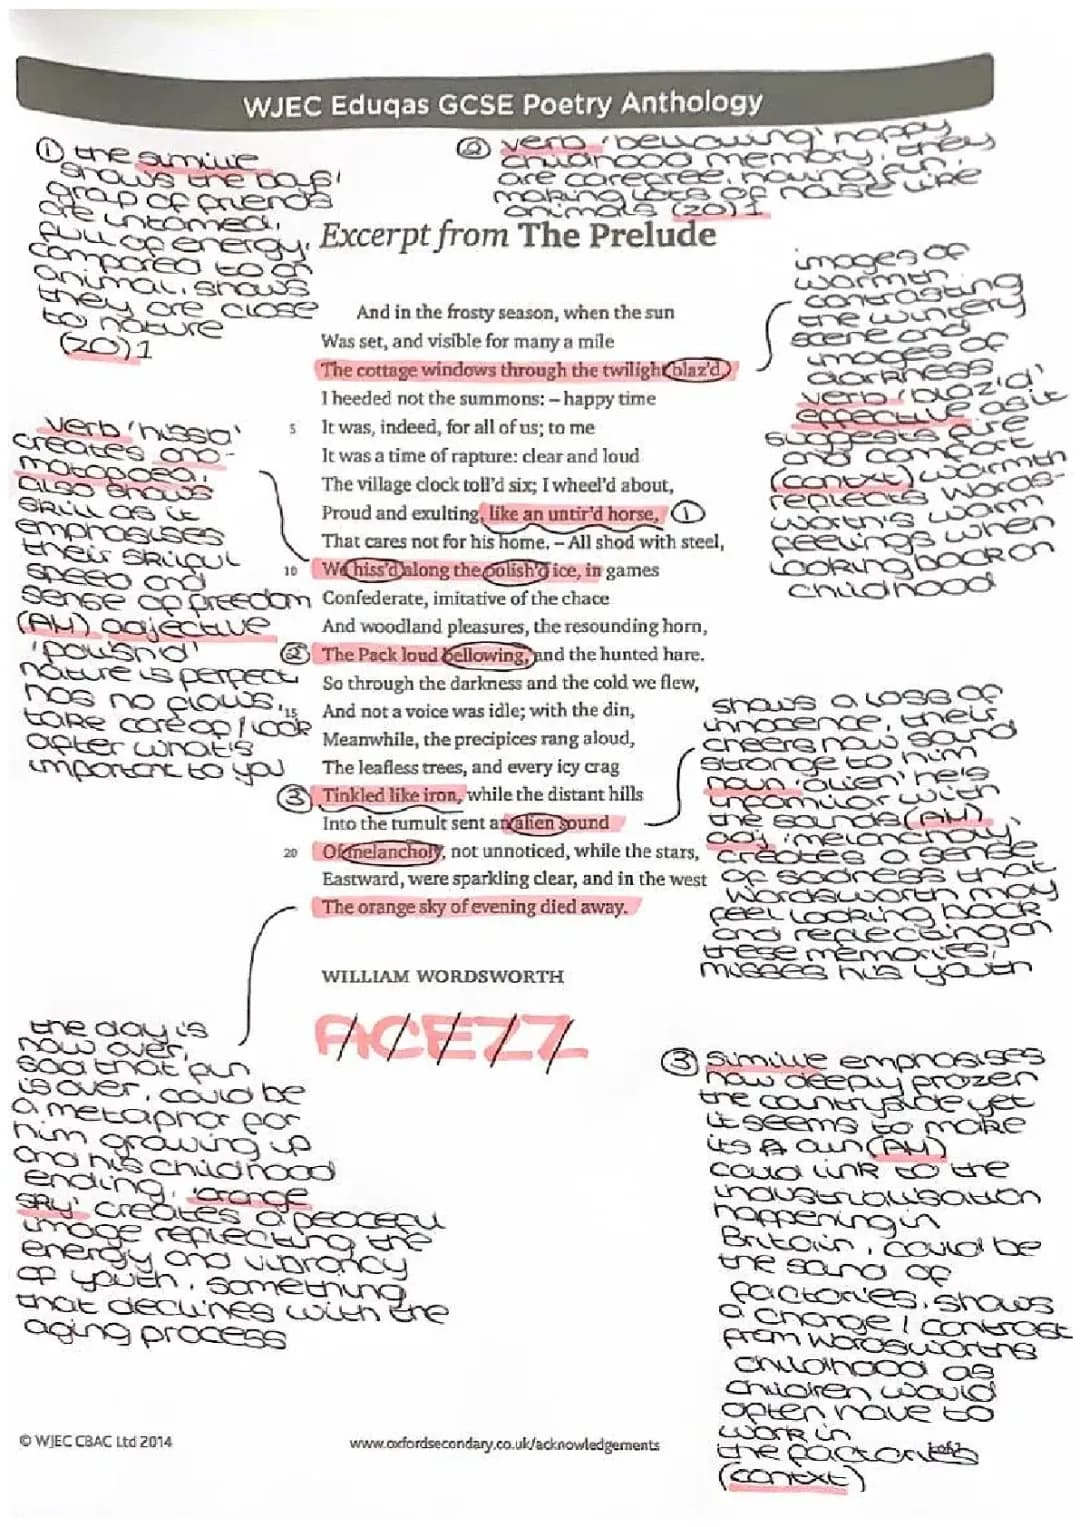 WJEC Eduqas GCSE Poetry Anthology
① the simile
shows the boys'
group of friends
are untamed,
full of energy.
compared to an
animal, shows
they are close
to nature
(ZO)1
② verb 'bellowing' happy
childhood memory, they
are carefree, having fun,
making lots of noise like
animals (ZO)1
Excerpt from The Prelude
And in the frosty season, when the sun
Was set, and visible for many a mile
The cottage windows through the twilight blaz'd,
I heeded not the summons: – happy time
5 It was, indeed, for all of us; to me
It was a time of rapture: clear and loud
The village clock toll'd six; I wheel'd about,
Proud and exulting, like an untir'd horse, ①
That cares not for his home. – All shod with steel,
10 We hiss'd along the polish'd ice, in games
Confederate, imitative of the chace
And woodland pleasures, the resounding horn,
② The Pack loud bellowing, and the hunted hare.
So through the darkness and the cold we flew,
15 And not a voice was idle; with the din,
Meanwhile, the precipices rang aloud,
The leafless trees, and every icy crag
③ Tinkled like iron, while the distant hills
Into the tumult sent an alien sound
20 Of melancholy, not unnoticed, while the stars,
Eastward, were sparkling clear, and in the west
The orange sky of evening died away.
WILLIAM WORDSWORTH
ACEZZ
images of
warmth
contrasting
the wintery
scene and
images of
darkness
verb 'blaz'd'
effective as it
suggests fire
and comfort
(context) warmth
reflects words-
worth's warm
feelings when
looking back on
childhood
verb 'hiss'd'
creates ono-
matopoeia,
also shows
skill as it
emphasises
their skilful
speed and
sense of freedom
(AH) adjective
'polish'd'
nature is perfect
has no flaws,
take care of / look
after what's
important to you
shows a loss of
innocence, their
cheers now sound
strange to him
noun 'alien' he's
unfamiliar with
the sounds (AH)
adj 'melancholy'
creates a sense
of sadness that
Wordsworth may
feel looking back
and reflecting on
these memories,
misses his youth
the day is
now over,
sad that fun
is over, could be
a metaphor for
him growing up
and his childhood
ending, 'orange
sky' creates a peaceful
image reflecting the
energy and vibrancy
of youth, something
that declines with the
aging process
③ simile emphasises
how deeply frozen
the countryside yet
it seems to make
its own (AH)
could link to the
industrialisation
happening in
Britain, could be
the sound of
factories, shows
a change / contrast
from wordsworths
childhood as
children would
often have to
work in
the factories
(context)
© WJEC CBAC Ltd 2014
www.oxfordsecondary.co.uk/acknowledgements